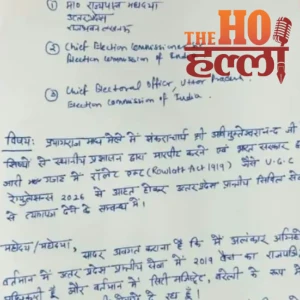 THE HO
हल्ला
① मा० राज्यपाल महोदया
उत्तर प्रदेश
राजभवन लखनऊ
② Chief Election Commissioner
Election Commission of
③ Chief Electoral Officer, Uttar Pradesh
Election Commission of India.
विषय: प्रयागराज माघ मेले में शंकराचार्य श्री अविमुक्तेश्वरानन्द जी
शिष्यों से स्थानीय प्रशासन द्वारा मारपीट करने एवं भारत सरकार
जारी रॉलेट एक्ट (Rowlatt Act 1919) जैसे U.G.C
रेगुलेशन्स 2026 से आहत होकर उत्तर प्रदेश प्रांतीय सिविल सेवा
से त्यागपत्र देने के सम्बन्ध में।
महोदय/महोदया,
सादर अवगत कराना है कि मैं अलंकार अग्नि
वर्तमान में उत्तर प्रदेश प्रांतीय सेवा में 2019 बैच का राजपत्रि
हूँ और वर्तमान में सिटी मजिस्ट्रेट, बरेली के रूप